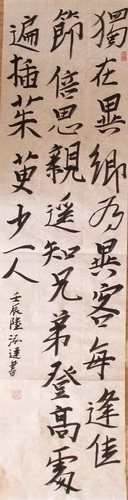 獨在異鄉為異客每逢佳
節倍思親遥知兄弟登高處
遍插茱萸少一人
壬辰陸海連書